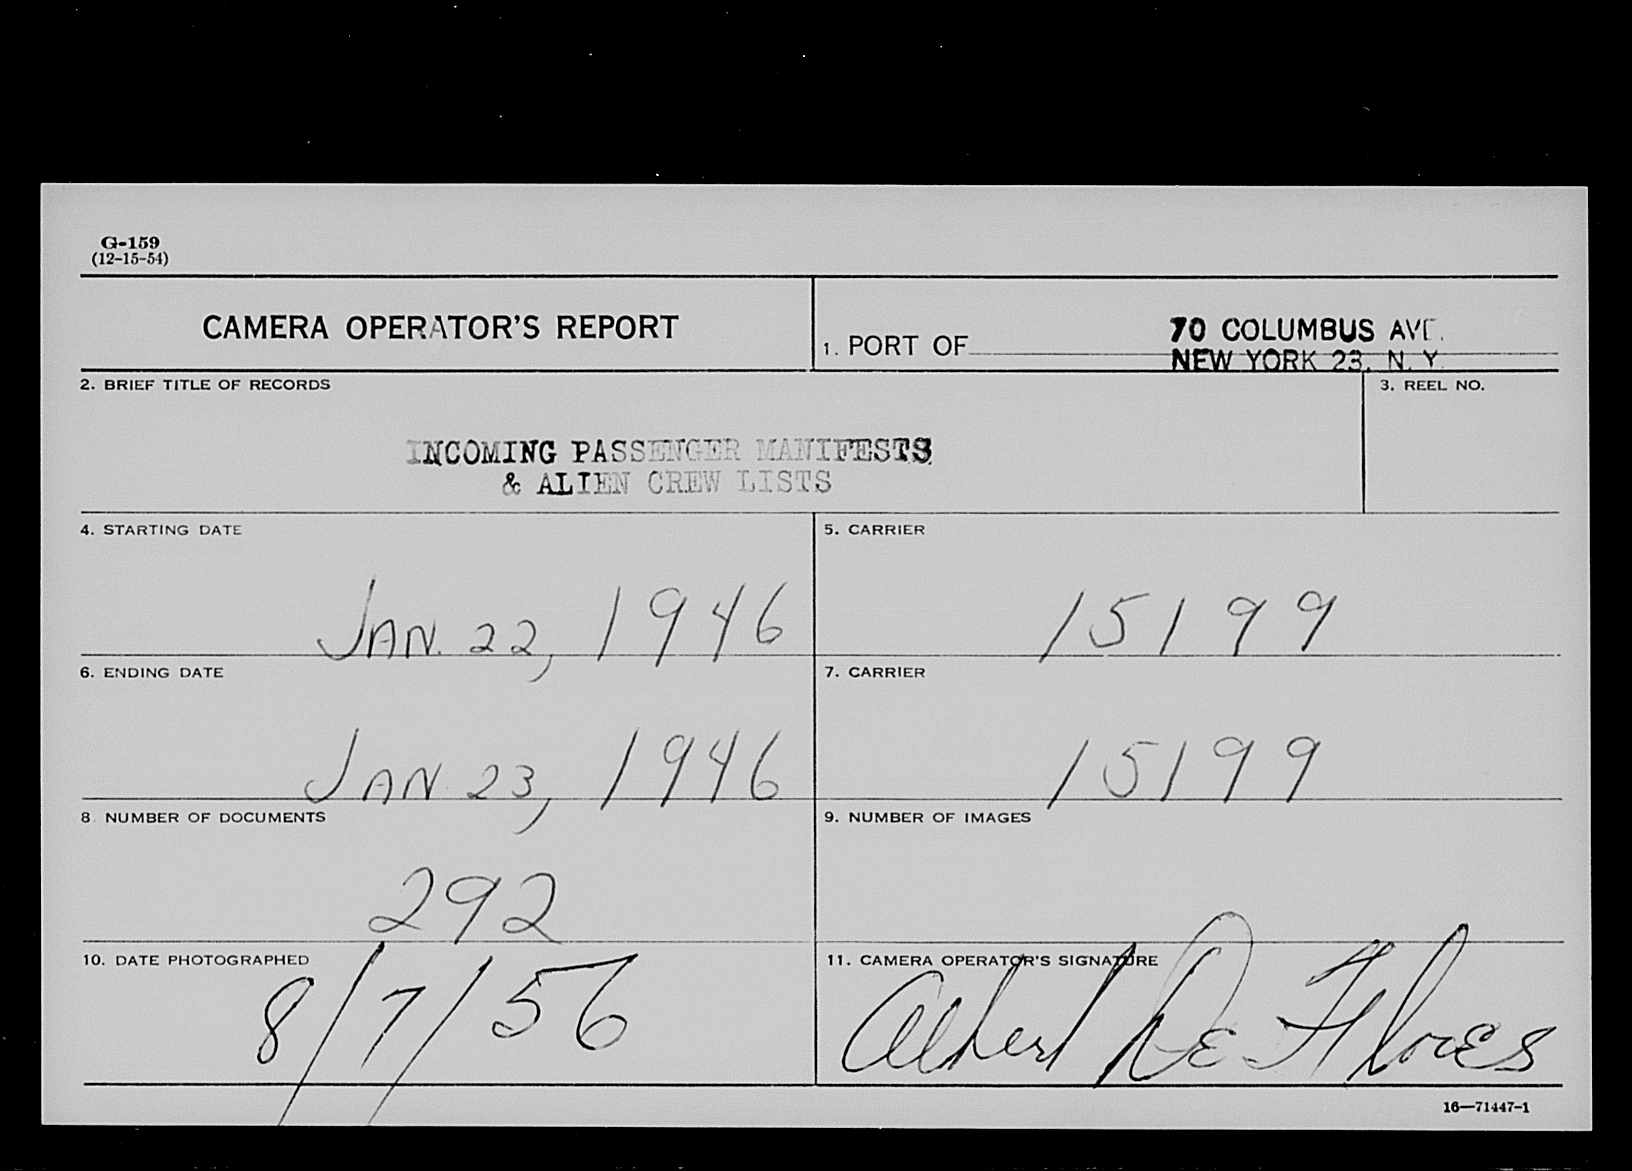 G-159
(12-15-54)
CAMERA OPERATOR'S REPORT
1. PORT OF
70 COLUMBUS AVE.
NEW YORK 23, N. Y.
2. BRIEF TITLE OF RECORDS
3. REEL NO.
INCOMING PASSENGER MANIFESTS
& ALIEN CREW LISTS
4. STARTING DATE
JAN. 22, 1946
5. CARRIER
15199
6. ENDING DATE
JAN 23, 1946
7. CARRIER
15199
8. NUMBER OF DOCUMENTS
292
9. NUMBER OF IMAGES
10. DATE PHOTOGRAPHED
8/7/56
11. CAMERA OPERATOR'S SIGNATURE
Albert De Flores
16—71447-1